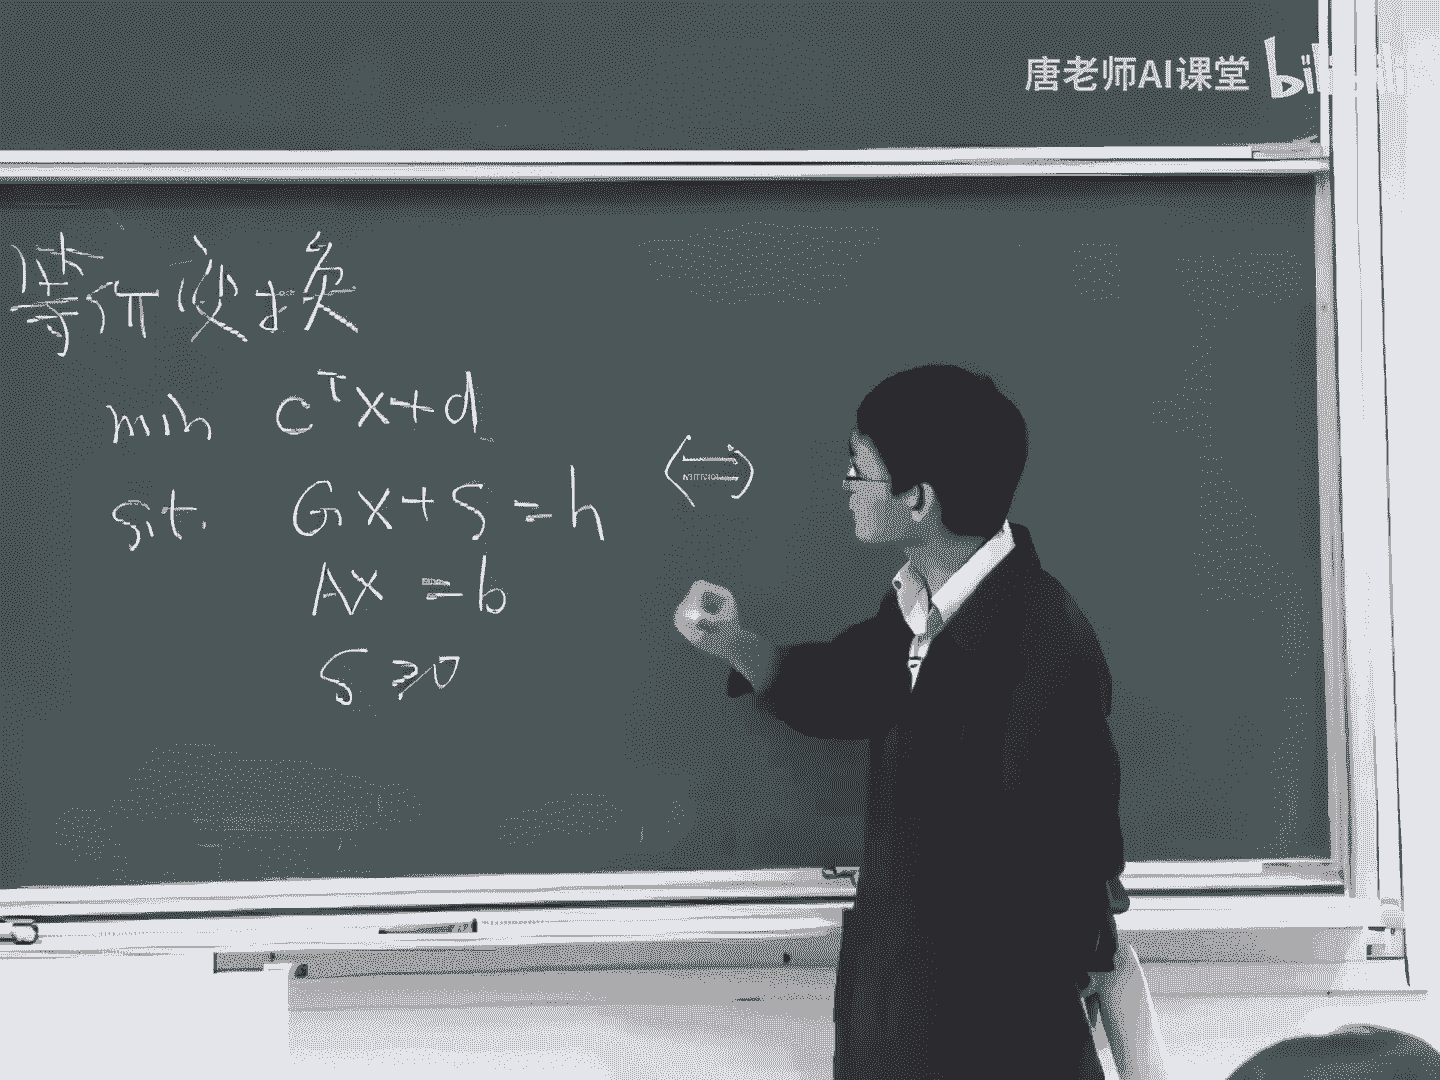 唐老师AI课堂 bilibili
等价变换
min c^T x + d
s.t. Gx + s = h
⇔
Ax = b
s ≥ 0